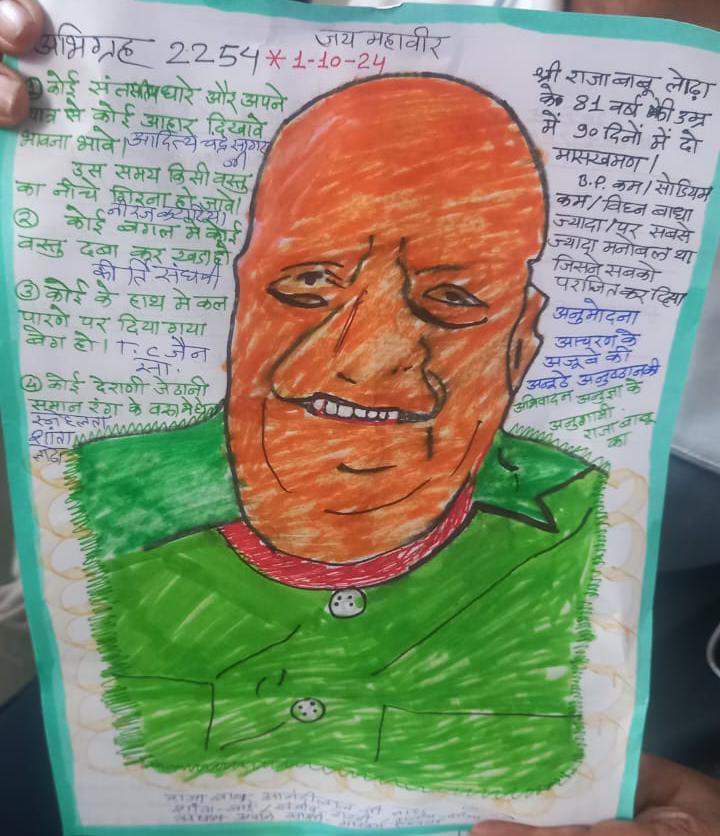 अभिग्रह 2254 * 1-10-24
जय महावीर
① कोई संत पधारे और अपने
पात्र से कोई आहार दिखावे
भावना भावे। आदित्य चंद्र सागर
जी
उस समय किसी वस्तु
का नीचे गिरना हो जावे।
नीरज कटारिया
② कोई बगल में कोई
वस्तु दबा कर खडा हो
कीर्ति संघवी
③ कोई के हाथ में कल
पारणे पर दिया गया
बेग हो। T.C जैन
सा.
④ कोई देराणी जेठानी
समान रंग के वस्त्र में
स्नेहलता
शांता
लोढा
श्री राजा बाबू लोढ़ा
के 81 वर्ष की उम्र
में 90 दिनों में दो
मासखमण।
B.P. कम/सोडियम
कम/विघ्न बाधा
ज्यादा/पर सबसे
ज्यादा मनोबल था
जिसने सबको
पराजित कर दिया
अनुमोदना
आचरण के
अजूबे की
अनूठे अनुष्ठान की
अभिवादन अनुज्ञा के
अनुगामी
राजा बाबू
का
राजा बाबू